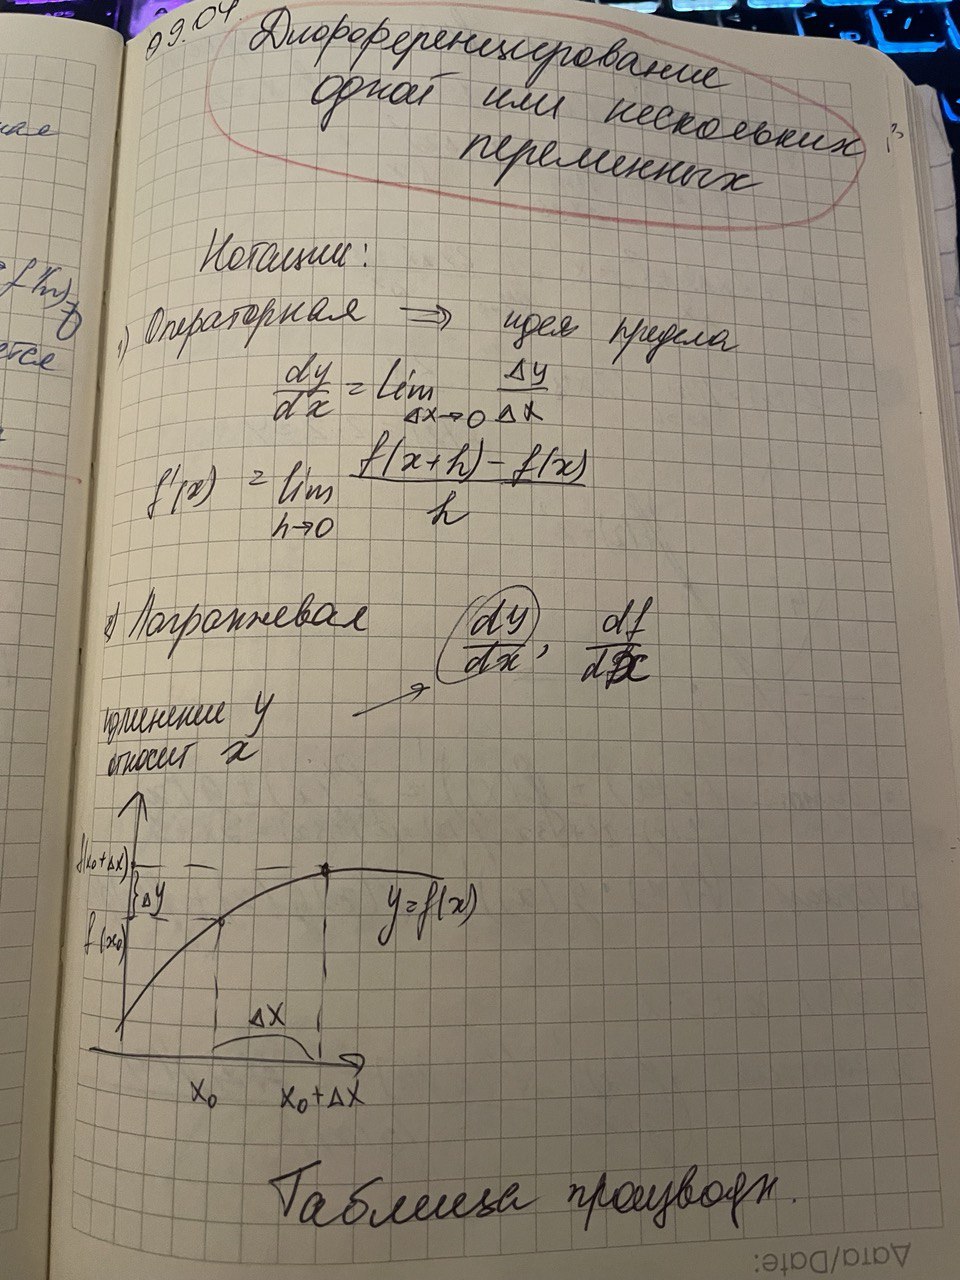 09.04.
Дифференцирование
одной или нескольких
переменных
Нотации:
1) Операторная ⇒ идея предела
dy/dx = lim Δx→0 Δy/Δx
f'(x) = lim h→0 (f(x+h) - f(x))/h
2) Лагранжевая dy/dx, df/dx
изменение y
относит x
f(x₀+Δx)
Δy
f(x₀)
y=f(x)
Δx
x₀ x₀+Δx
Таблица производн.
Дата/Date: